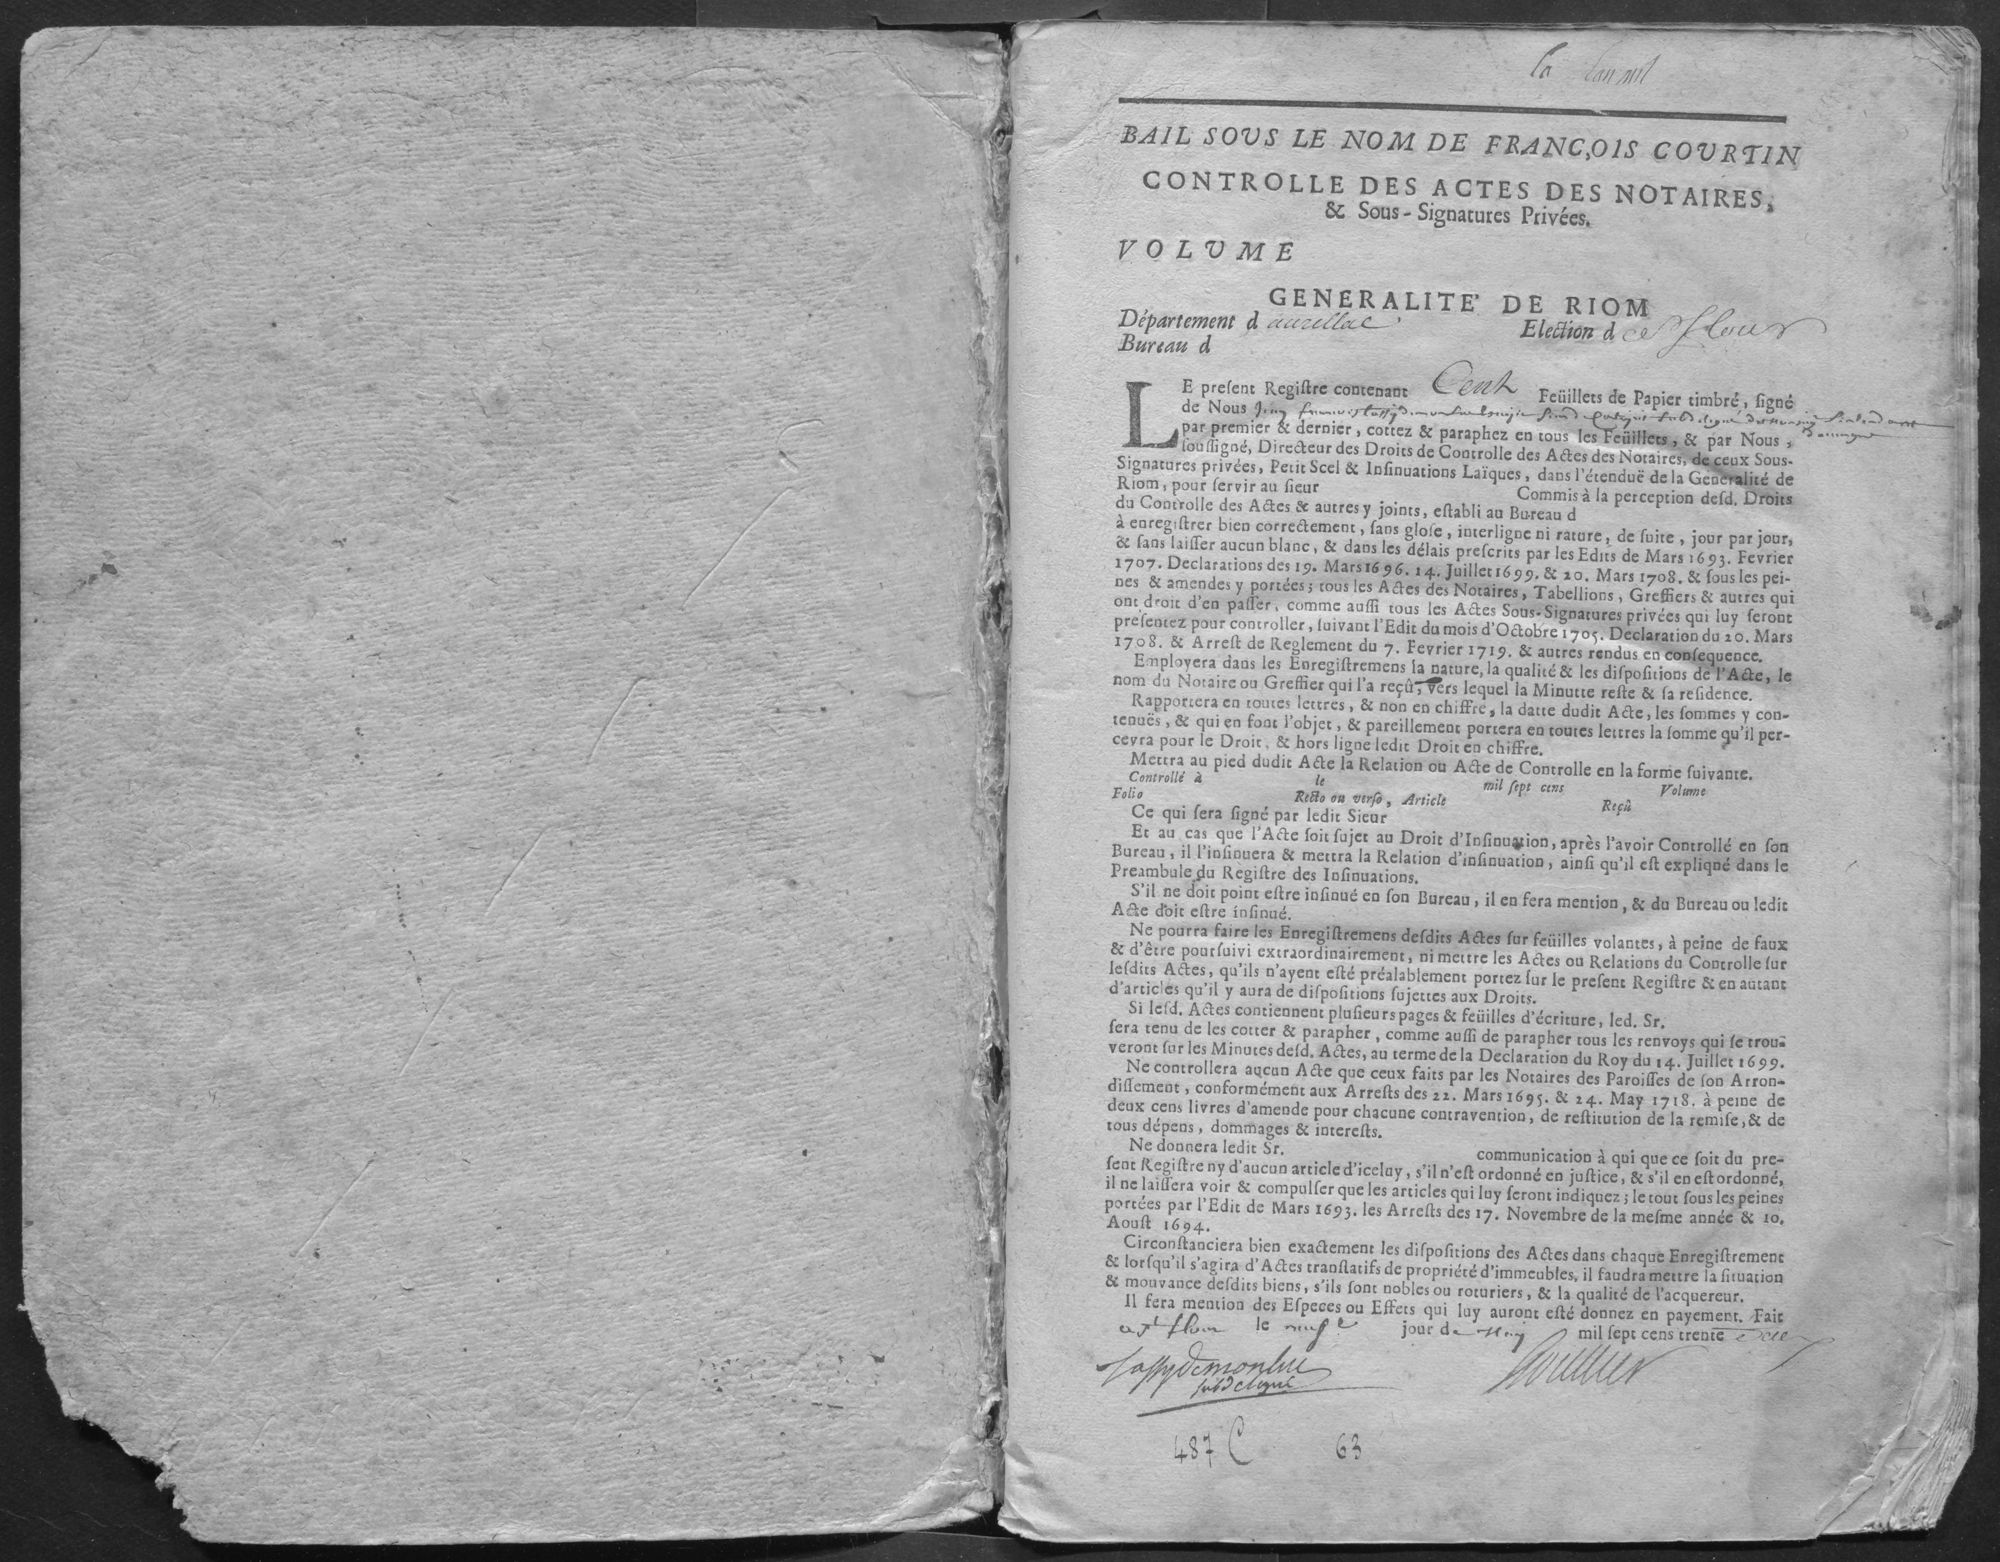 BAIL SOUS LE NOM DE FRANC,OIS COURTIN
CONTROLLE DES ACTES DES NOTAIRES,
& Sous-Signatures Privées.
VOLUME
GENERALITE' DE RIOM
Département d aurillac Election d
Bureau d
LE preſent Regiſtre contenant Cent Feüillets de Papier timbré, ſigné
de Nous
par premier & dernier, cottez & paraphez en tous les Feüillets, & par Nous,
ſouſſigné, Directeur des Droits de Controlle des Actes des Notaires, de ceux Sous-
Signatures privées, Petit Scel & Inſinuations Laïques, dans l'étenduë de la Generalité de
Riom, pour ſervir au ſieur Commis à la perception deſd. Droits
du Controlle des Actes & autres y joints, eſtabli au Bureau d
à enregiſtrer bien correctement, ſans gloſe, interligne ni rature, de ſuite, jour par jour,
& ſans laiſſer aucun blanc, & dans les délais preſcrits par les Edits de Mars 1693. Fevrier
1707. Declarations des 19. Mars 1696. 14. Juillet 1699. & 20. Mars 1708. & ſous les pei-
nes & amendes y portées; tous les Actes des Notaires, Tabellions, Greffiers & autres qui
ont droit d'en paſſer, comme auſſi tous les Actes Sous-Signatures privées qui luy ſeront
preſentez pour controller, ſuivant l'Edit du mois d'Octobre 1705. Declaration du 20. Mars
1708. & Arreſt de Reglement du 7. Fevrier 1719. & autres rendus en conſequence.
Employera dans les Enregiſtremens la nature, la qualité & les diſpoſitions de l'Acte, le
nom du Notaire ou Greffier qui l'a reçû, vers lequel la Minutte reſte & ſa reſidence.
Rapportera en toutes lettres, & non en chiffre, la datte dudit Acte, les ſommes y con-
tenuës, & qui en font l'objet, & pareillement portera en toutes lettres la ſomme qu'il per-
cevra pour le Droit, & hors ligne ledit Droit en chiffre.
Mettra au pied dudit Acte la Relation ou Acte de Controlle en la forme ſuivante.
Controllé à le mil ſept cens Volume
Folio Recto ou verſo, Article Reçû
Ce qui ſera ſigné par ledit Sieur
Et au cas que l'Acte ſoit ſujet au Droit d'Inſinuation, après l'avoir Controllé en ſon
Bureau, il l'inſinuera & mettra la Relation d'inſinuation, ainſi qu'il eſt expliqué dans le
Preambule du Regiſtre des Inſinuations.
S'il ne doit point eſtre inſinué en ſon Bureau, il en fera mention, & du Bureau ou ledit
Acte doit eſtre inſinué.
Ne pourra faire les Enregiſtremens deſdits Actes ſur feüilles volantes, à peine de faux
& d'être pourſuivi extraordinairement, ni mettre les Actes ou Relations du Controlle ſur
leſdits Actes, qu'ils n'ayent eſté préalablement portez ſur le preſent Regiſtre & en autant
d'articles qu'il y aura de diſpoſitions ſujettes aux Droits.
Si leſd. Actes contiennent pluſieurs pages & feüilles d'écriture, led. Sr.
ſera tenu de les cotter & parapher, comme auſſi de parapher tous les renvoys qui ſe trou-
veront ſur les Minutes deſd. Actes, au terme de la Declaration du Roy du 14. Juillet 1699.
Ne controllera aucun Acte que ceux faits par les Notaires des Paroiſſes de ſon Arron-
diſſement, conformément aux Arreſts des 22. Mars 1695. & 24. May 1718. à peine de
deux cens livres d'amende pour chacune contravention, de reſtitution de la remiſe, & de
tous dépens, dommages & intereſts.
Ne donnera ledit Sr. communication à qui que ce ſoit du pre-
ſent Regiſtre ny d'aucun article d'iceluy, s'il n'eſt ordonné en juſtice, & s'il en eſt ordonné,
il ne laiſſera voir & compulſer que les articles qui luy ſeront indiquez; le tout ſous les peines
portées par l'Edit de Mars 1693. les Arreſts des 17. Novembre de la meſme année & 10.
Aouſt 1694.
Circonſtanciera bien exactement les diſpoſitions des Actes dans chaque Enregiſtrement
& lorſqu'il s'agira d'Actes tranſlatifs de propriété d'immeubles, il faudra mettre la ſituation
& mouvance deſdits biens, s'ils ſont nobles ou roturiers, & la qualité de l'acquereur.
Il fera mention des Eſpeces ou Effets qui luy auront eſté donnez en payement. Fait
le jour de mil ſept cens trente
subdelegué
487 C 63